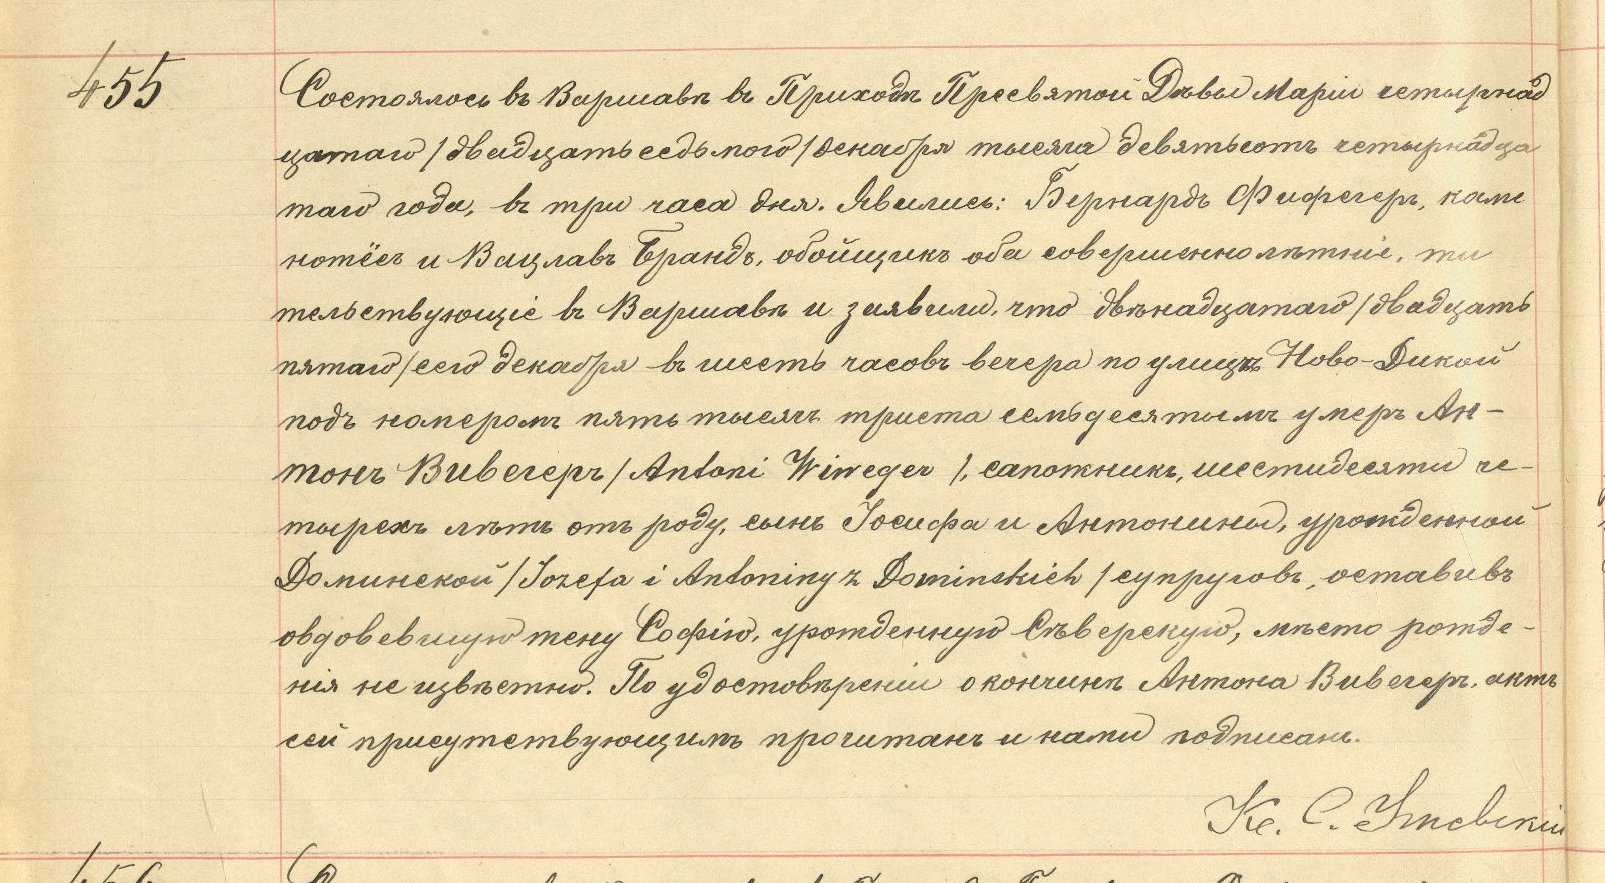 455
Состоялось въ Варшавѣ въ Приходѣ Пресвятой Дѣвы Маріи четырнад
цатаго / двадцать седьмого / декабря тысяча девятьсотъ четырнадца
таго года, въ три часа дня. Явились: Бернардъ Фифегеръ, каме
нотёсъ и Вацлавъ Брандъ, обойщикъ оба совершеннолѣтніе, жи
тельствующіе въ Варшавѣ и заявили, что двѣнадцатаго / двадцать
пятаго / сего декабря въ шесть часовъ вечера по улицѣ Ново-Дикой
подъ номеромъ пять тысячъ триста семьдесятымъ умеръ Ан-
тонъ Вивегеръ / Antoni Wiweger /, сапожникъ, шестидесяти че-
тырехъ лѣтъ отъ роду, сынъ Іосифа и Антонины, урожденной
Доминской / Jozefa i Antoniny z Dominskich / супруговъ, оставивъ
овдовевшую жену Софію, урожденную Сѣверскую, мѣсто рожде-
нія не извѣстно. По удостовѣреніи о кончинѣ Антона Вивегеръ, актъ
сей присутствующимъ прочитанъ и нами подписанъ.
Кс. С.
456